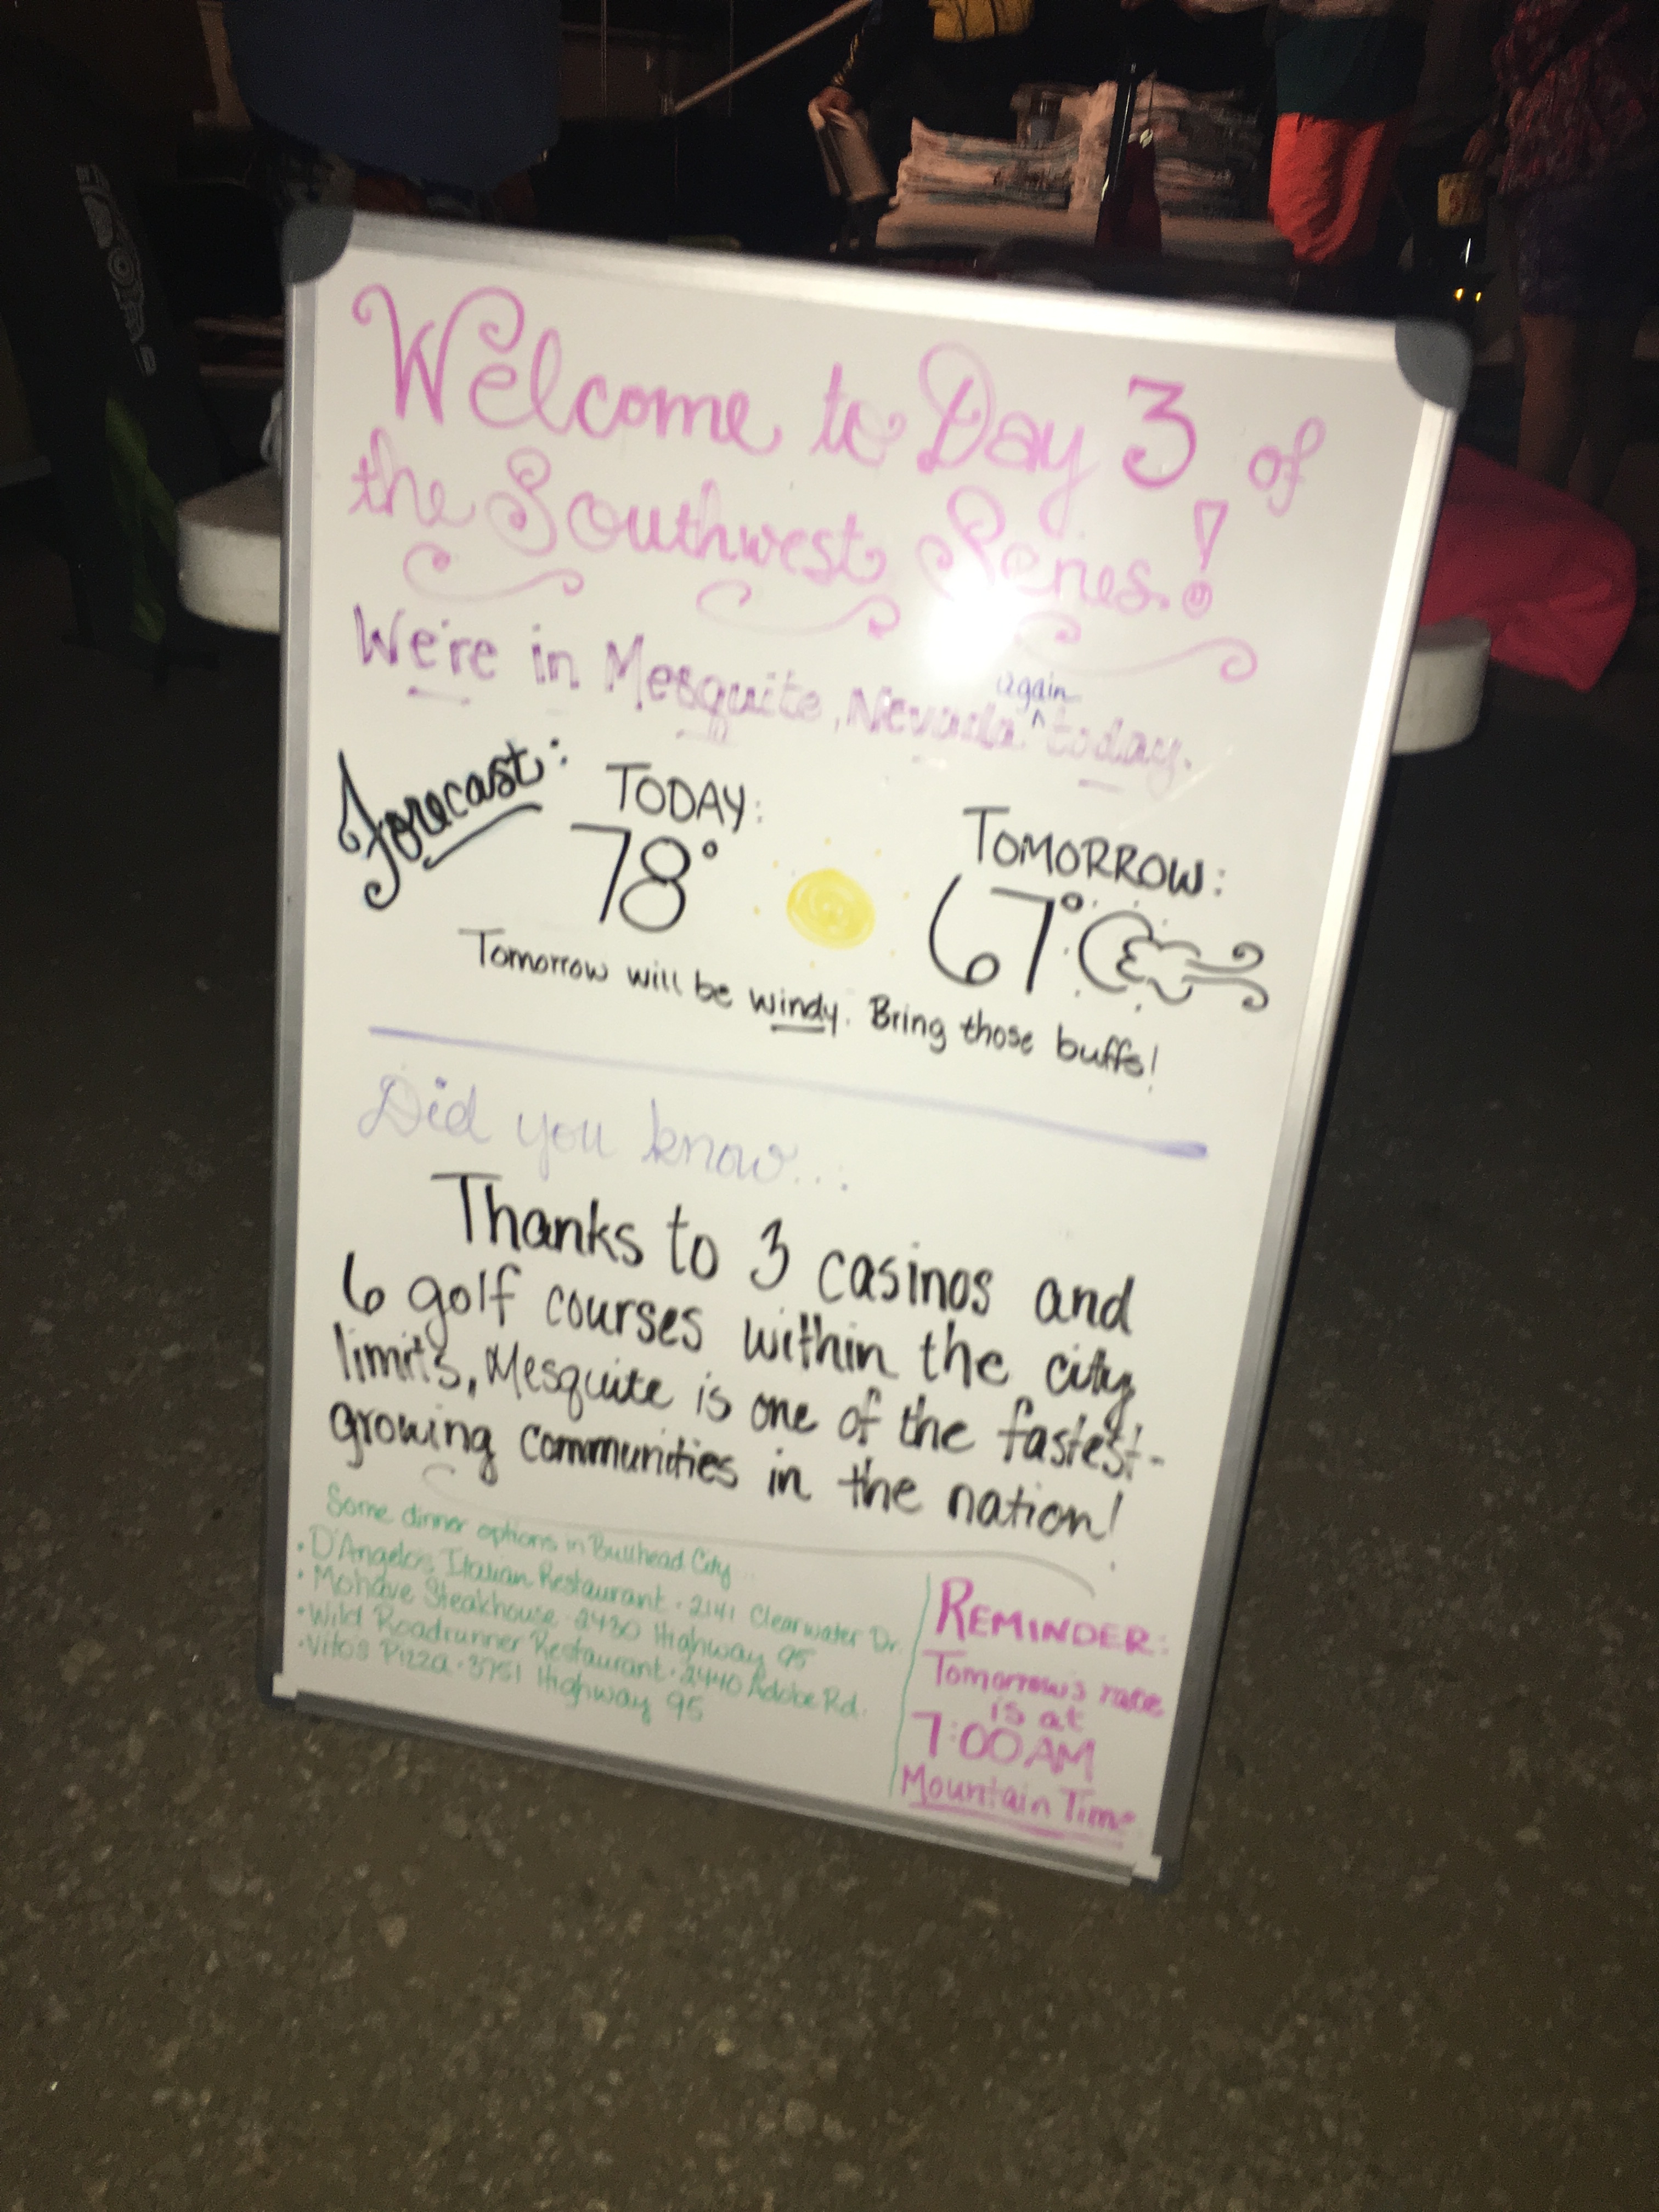 Welcome to Day 3 of
the Southwest Series!
We're in Mesquite, Nevada again today.
Forecast:
TODAY:
78°
TOMORROW:
67°
Tomorrow will be windy. Bring those buffs!
Did you know...
Thanks to 3 casinos and
6 golf courses within the city
limits, Mesquite is one of the fastest-
growing communities in the nation!
Some dinner options in Bullhead City...
• D'Angelo's Italian Restaurant · 2141 Clearwater Dr.
• Mohave Steakhouse · 2430 Highway 95
• Wild Roadrunner Restaurant · 2440 Adobe Rd.
• Vito's Pizza · 3751 Highway 95
REMINDER:
Tomorrow's race
is at
7:00 AM
Mountain Time